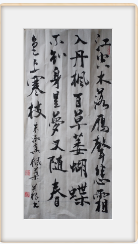 江空木落雁聲悲霜
入丹楓百草萎蝴蝶
不知身是夢又隨春
色上寒枝